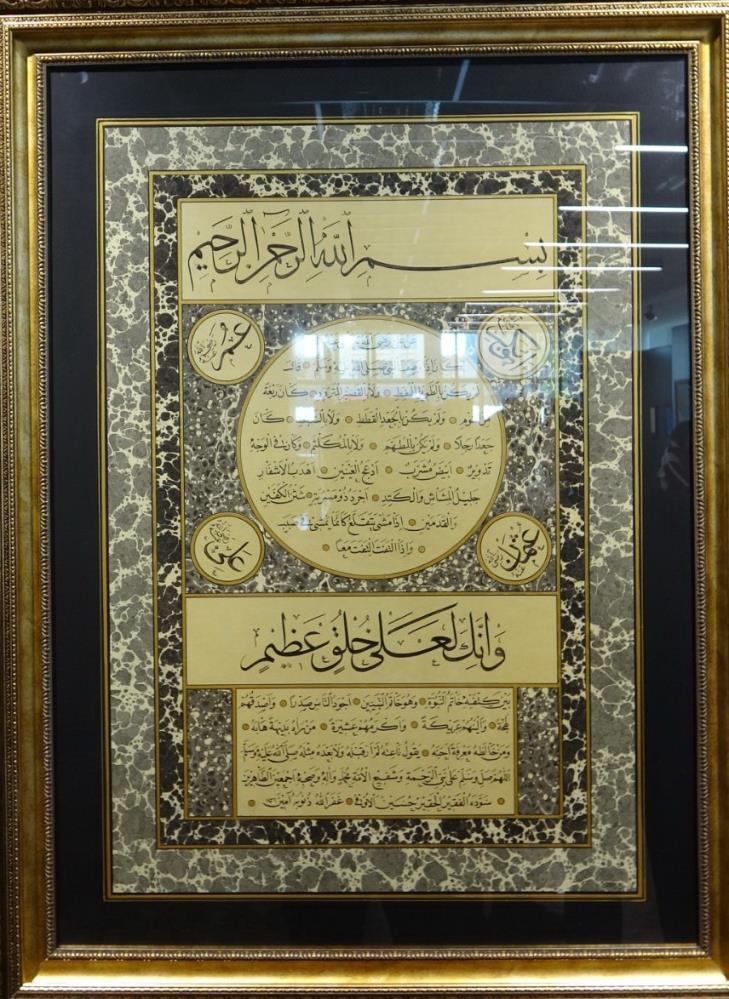 بِسْمِ اللّٰهِ الرَّحْمٰنِ الرَّحِيمِ
عمر رضي الله عنه
كان اذا وصف النبي صلى الله عليه وسلم قال
لم يكن بالطويل الممغط ولا بالقصير المتردد كان ربعة
من القوم ولم يكن بالجعد القطط ولا بالسبط كان
جعدا رجلا ولم يكن بالمطهم ولا بالمكلثم وكان في الوجه
تدوير ابيض مشرب ادعج العينين اهدب الاشفار
جليل المشاش والكتد اجرد ذو مسربة شثن الكفين
والقدمين اذا مشى يتقلع كانما يمشي في صبب
واذا التفت التفت معا
عثمن رضي الله عنه
علي رضي الله عنه
وَاِنَّكَ لَعَلٰى خُلُقٍ عَظِيمٍ
بين كتفيه خاتم النبوة وهو خاتم النبيين اجود الناس صدرا واصدقهم
لهجة والينهم عريكة واكرمهم عشيرة من راه بديهة هابه
ومن خالطه معرفة احبه يقول ناعته لم ار قبله ولا بعده مثله صلى الله عليه وسلم
اللهم صل وسلم على نبي الرحمة وشفيع الامة محمد واله وصحبه اجمعين الطاهرين
سوده الفقير الحقير حسين غفر الله ذنوبه امين